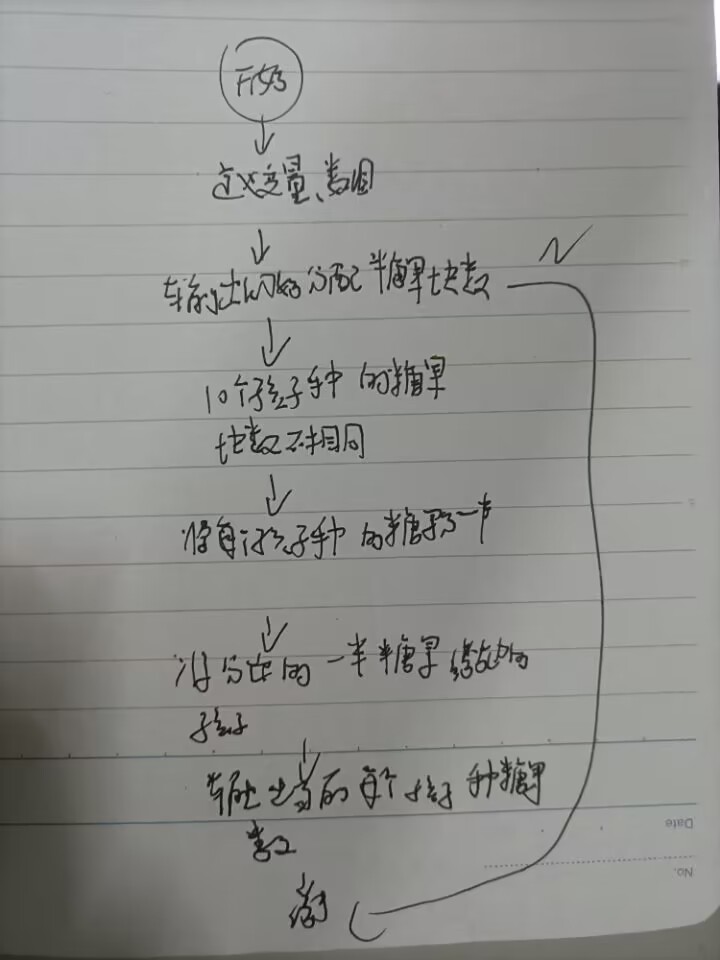 开始
定义变量、数组
输出初始分配糖果块数
N
10个孩子手中的糖果
块数不相同
将每个孩子手中的糖果分一半
将分出的一半糖果给他的
孩子
输出当前每个孩子手中糖果
数
结束
Date
No.